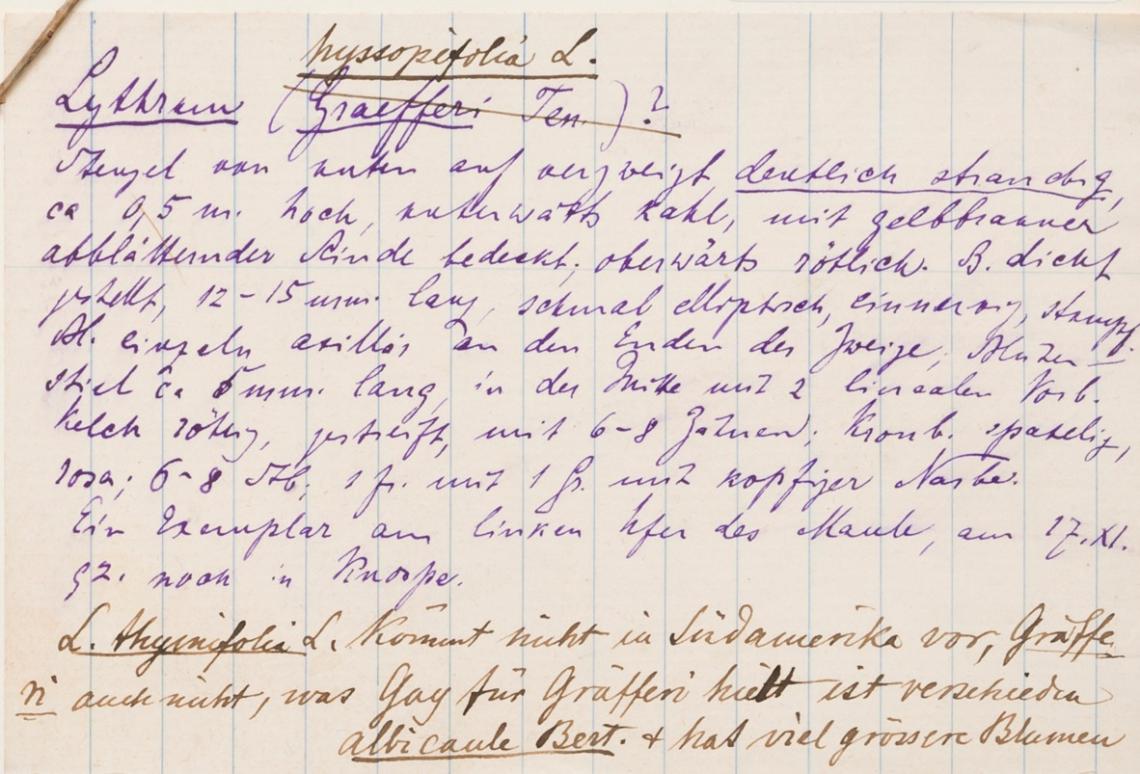 hyssopifolia L.
Lythrum (Graefferi Ten.)?
Stengel von unten auf verzweigt, deutlich strauchig,
ca 0,5 m. hoch, unterwärts kahl, mit gelbbrauner
abblätternder Rinde bedeckt; oberwärts rötlich. B. dicht
gestellt, 12-15 mm. lang, schmal elliptisch, einnervig, stumpf.
Bl. einzeln axillär an den Enden der Zweige; Blüten-
stiel ca 5 mm. lang, in der Mitte mit 2 linealen Vorb.
Kelch rötlig, gestreift, mit 6-8 Zähnen; Kronb. spatelig,
rosa; 6-8 Stb; 1 fr. mit 1 Gr. mit kopfiger Narbe.
Ein Exemplar am linken Ufer des Maule, am 17.XI.
92. noch in Knospe.
L. thymifolia L. kommt nicht in Südamerika vor, Gräffe
ri auch nicht, was Gay für Gräfferi hielt ist verschieden
albicaule Bert. + hat viel grössere Blumen